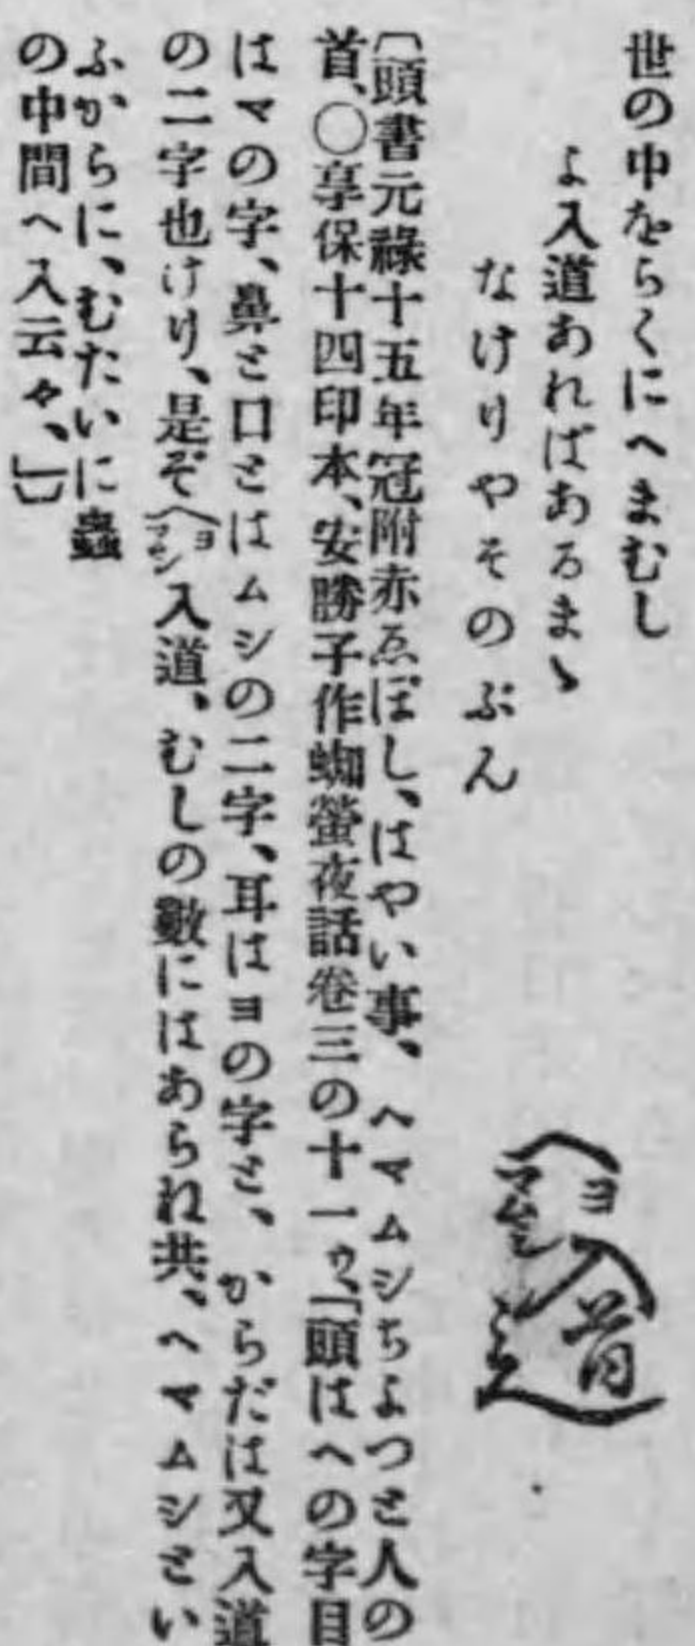 世の中をらくにへまむし
よ入道あればあるまゝ
なけりやそのぶん
〔頭書元祿十五年冠附赤ゑぼし、はやい事、ヘマムシちよつと人の
首、〇享保十四印本、安勝子作蜘螢夜話卷三の十一ウ、「頭はへの字目
はマの字、鼻と口とはムシの二字、耳はヨの字と、からだは又入道
の二字也けり、是ぞヘマムシヨ入道、むしの數にはあらね共、ヘマムシとい
ふからに、むたいに蟲
の中間へ入云々、」〕
ヘマムシヨ入道